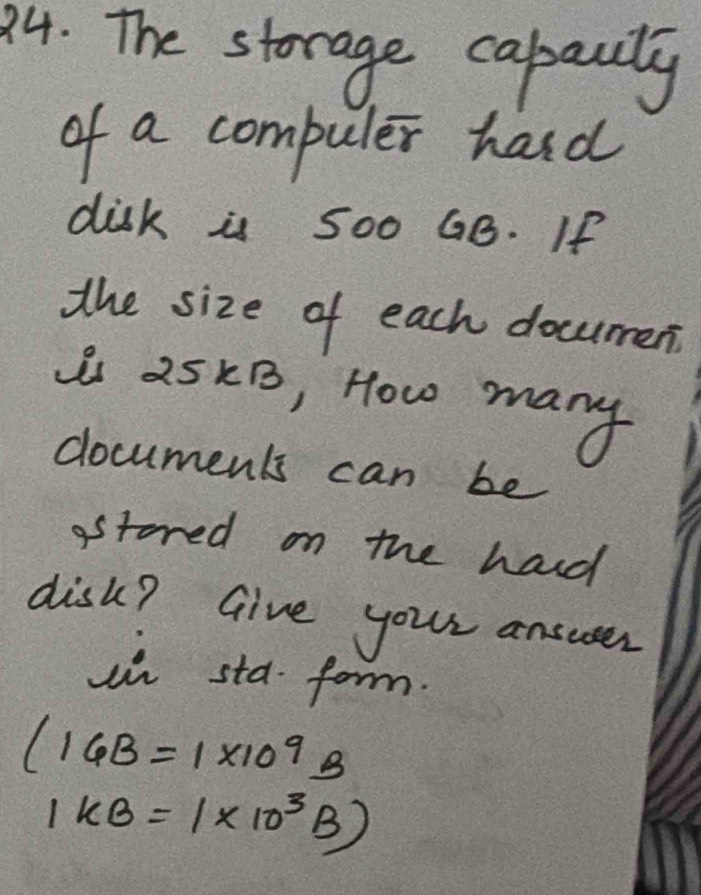 24. The storage capacity
of a computer hard
disk is 500 GB. If
the size of each document
is 25KB, How many
documents can be
stored on the hard
disk? Give your answer
in std. form.
(1GB = 1×10⁹ B
1 KB = 1×10³ B)